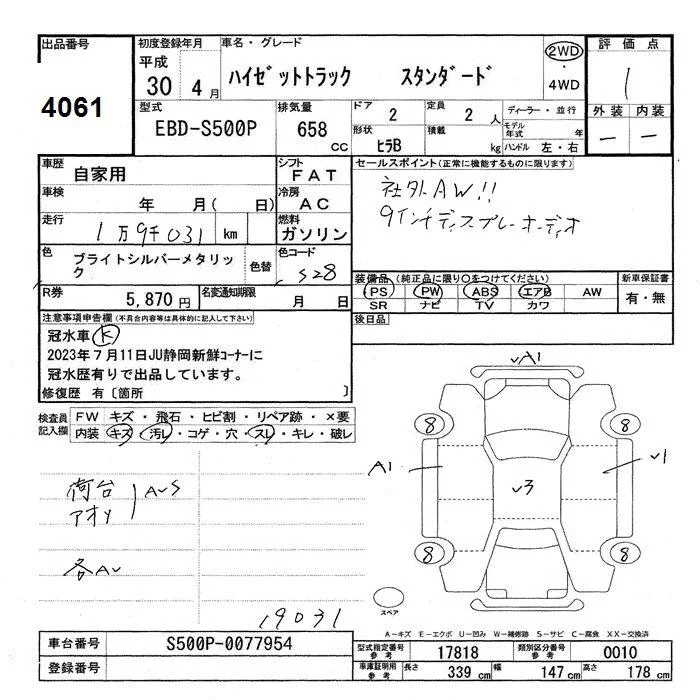 出品番号
4061
初度登録年月
平成
30 4 月
車名・グレード
ハイゼットトラック スタンダード
2WD
・
4WD
評価点
1
型式
EBD-S500P
排気量
658 cc
ドア
2
定員
2 人
形状
ヒラB
積載
kg
ディーラー・並行
モデル年式 年
ハンドル 左・右
外装 内装
— —
車歴
自家用
シフト
FAT
車検
年 月( 日)
冷房
AC
走行
1万9千031 km
燃料
ガソリン
色
ブライトシルバーメタリック
色替
色コード
S28
R券
5,870 円
名変通知期限
月 日
セールスポイント(正常に機能するものに限ります)
社外AW!!
9インチディスプレーオーディオ
装備品 (純正品に限り○をつけてください)
PS PW ABS エアB AW
SR ナビ TV カワ
新車保証書
有・無
後日品
注意事項申告欄(不具合内容等は具体的に記入して下さい)
冠水車 K
2023年7月11日JU静岡新鮮コーナーに
冠水歴有りで出品しています。
修復歴 有〔箇所 〕
検査員記入欄
FW キズ・飛石・ヒビ割・リペア跡・×要
内装 キズ・汚レ・コゲ・穴・スレ・キレ・破レ
荷台
アオリ
AUS
各AU
19031
A1
8
8
A1
1
3
8
8
スペア
A-キズ E-エクボ U-凹み W-補修跡 S-サビ C-腐食 XX-交換済
車台番号
S500P-0077954
登録番号
型式指定番号参考
17818
類別区分番号参考
0010
車庫証明用参考
長さ 339 cm 幅 147 cm 高さ 178 cm